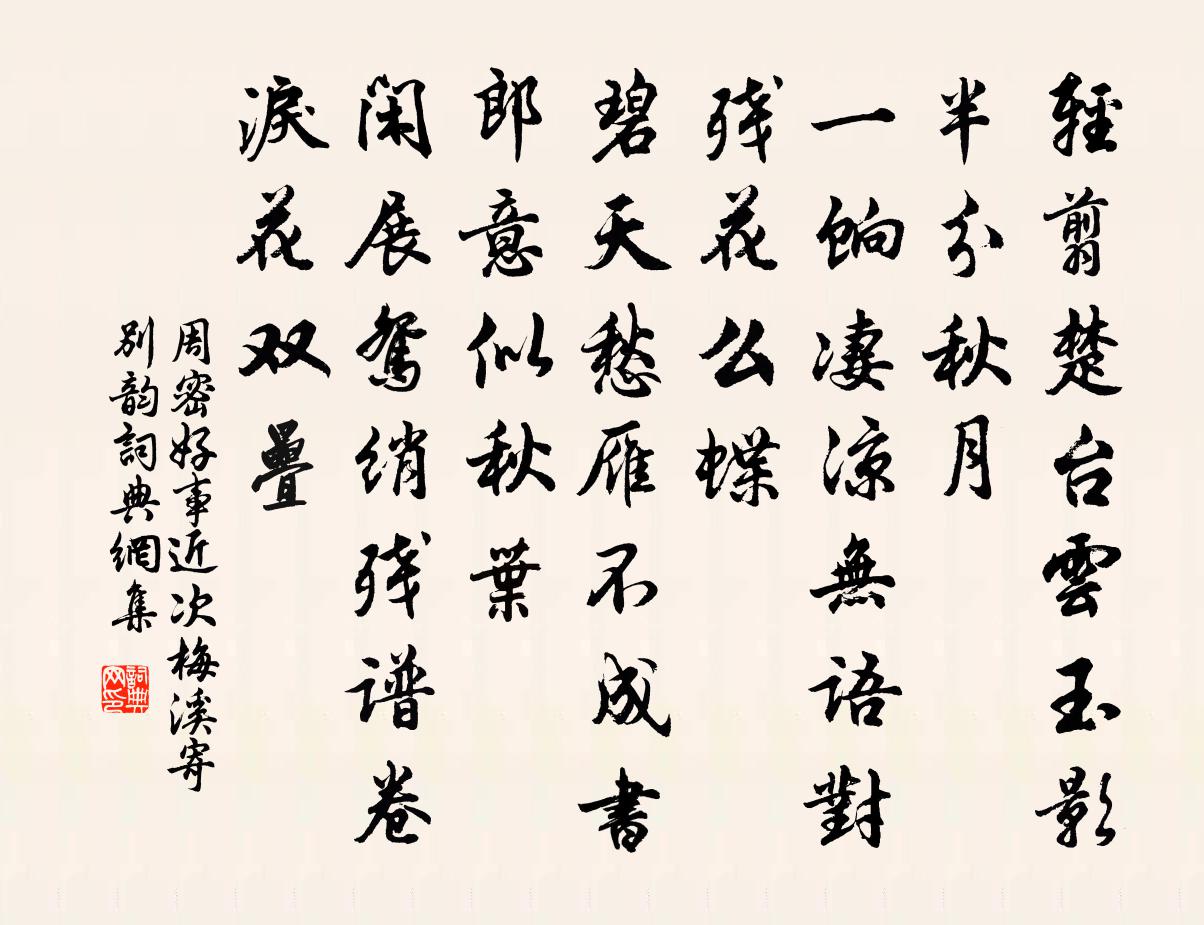 輕翦楚台雲玉影
半分秋月
一餉凄涼無語對
残花么蝶
碧天愁雁不成書
郎意似秋葉
閑展鴛绡残谱卷
淚花双疊
周密好事近次梅溪寄
別韵詞典網集
詞典网印